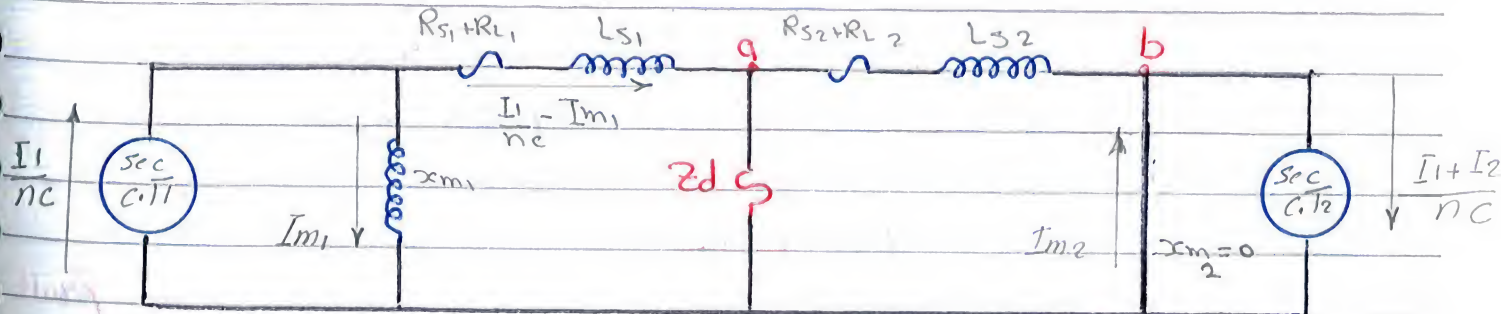 Rs1+RL1 Ls1 a Rs2+RL2 Ls2 b
I1/nc - Im1
I1/nc
sec/C.T1
xm1
Im1
Zd
Im2
xm2=0
sec/C.T2
I1+I2/nc